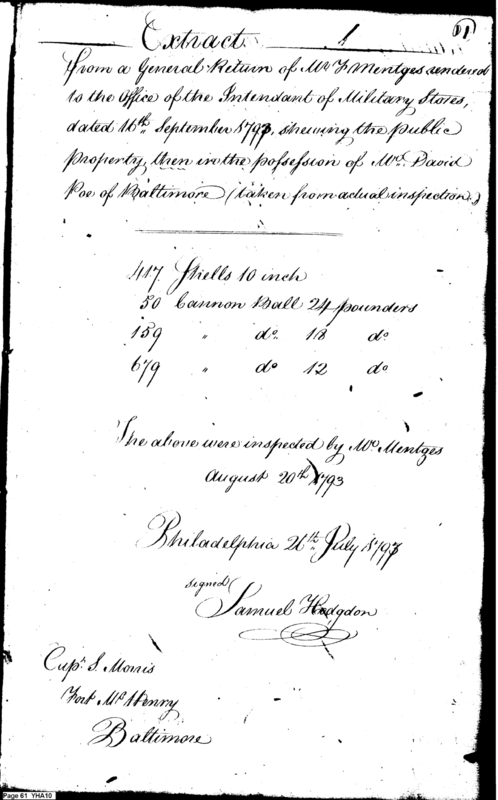 Extract 1
from a General Return of Mr. F. Mentges rendered
to the Office of the Intendant of Military Stores,
dated 16th September 1793, shewing the public
Property, then in the possession of Mr. David
Poe of Baltimore (taken from actual inspection.)
417. Shells 10 inch
50 Cannon Ball 24 pounders
159 " do. 18 do.
679 " do 12 do
The above were inspected by Mr. Mentges
August 20th 1793
Philadelphia 26th July 1797
signed
Samuel Hodgdon
Capt. S. Morris
Fort McHenry
Baltimore
Page 61 YHA10